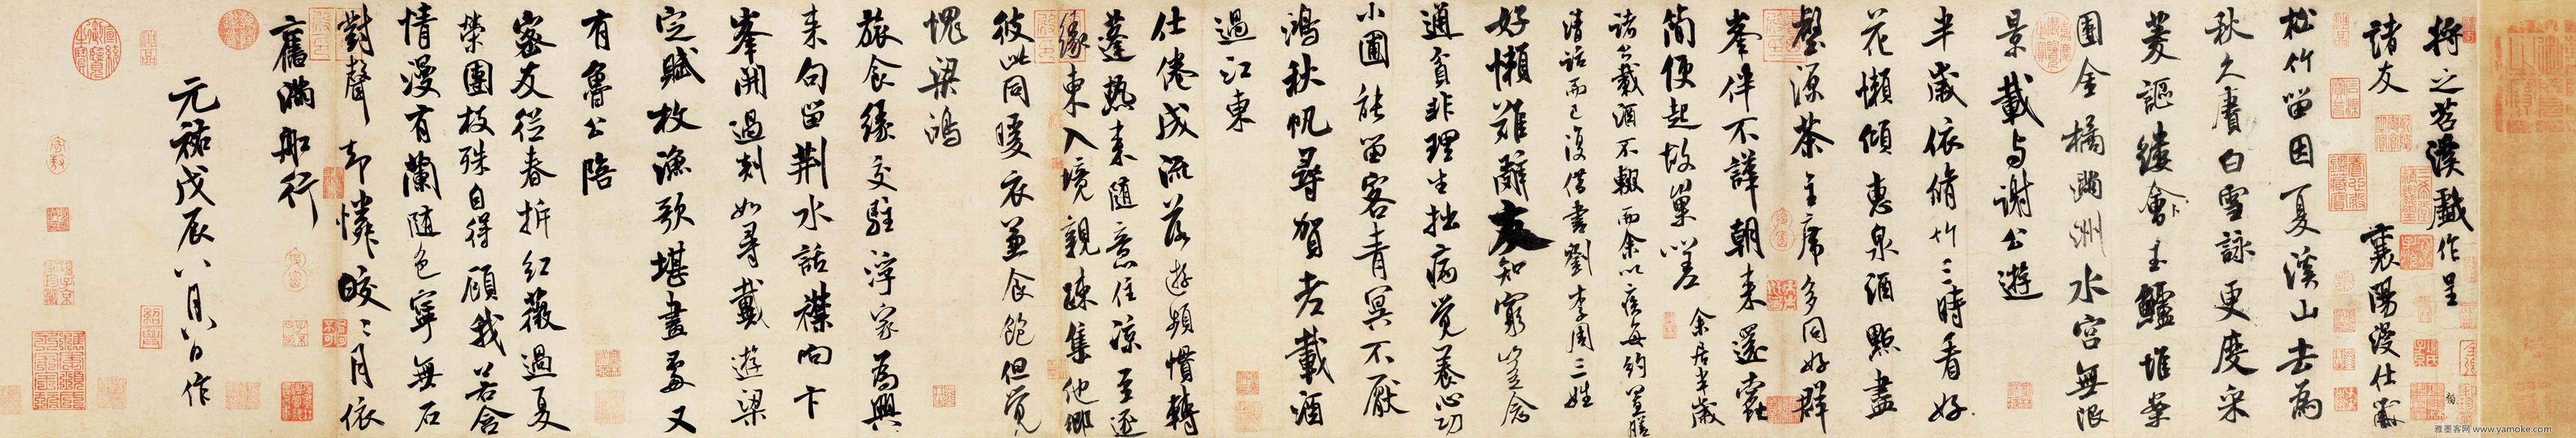 將之苕溪戲作呈
諸友 襄陽漫仕黻
松竹留因夏溪山去為
秋久賡白雪詠更度采
菱謳縷會玉鱸堆案
團金橘滿洲水宮無限
景載与謝公遊
半歲依脩竹三時看好
花懶傾惠泉酒點盡
壑源茶主席多同好群
峯伴不譁朝来還蠹
簡便起故巢嗟 余居半歲
諸公載酒不輟而余以疾每約置膳
清話而已復借書劉李周三姓
好懶難辭友知窮豈念
通貧非理生拙病覺養心功
小圃能留客青冥不厭
鴻秋帆尋賀老載酒
過江東
仕倦成流落遊頻慣轉
蓬熱来隨意住涼至逐
緣東入境親疎集他鄉
彼此同暖衣兼食飽但覺
愧梁鴻
旅食緣交駐浮家為興
来句留荆水話襟向卞
峯開過剡如尋戴遊梁
定賦枚漁歌堪畫處又
有魯公陪
密友從春拆紅薇過夏
榮團枝殊自得顧我若含
情漫有蘭隨色寧無石
對聲却憐皎〻月依
舊滿船行
元祐戊辰八月八日作
雅墨客网 www.yamoke.com